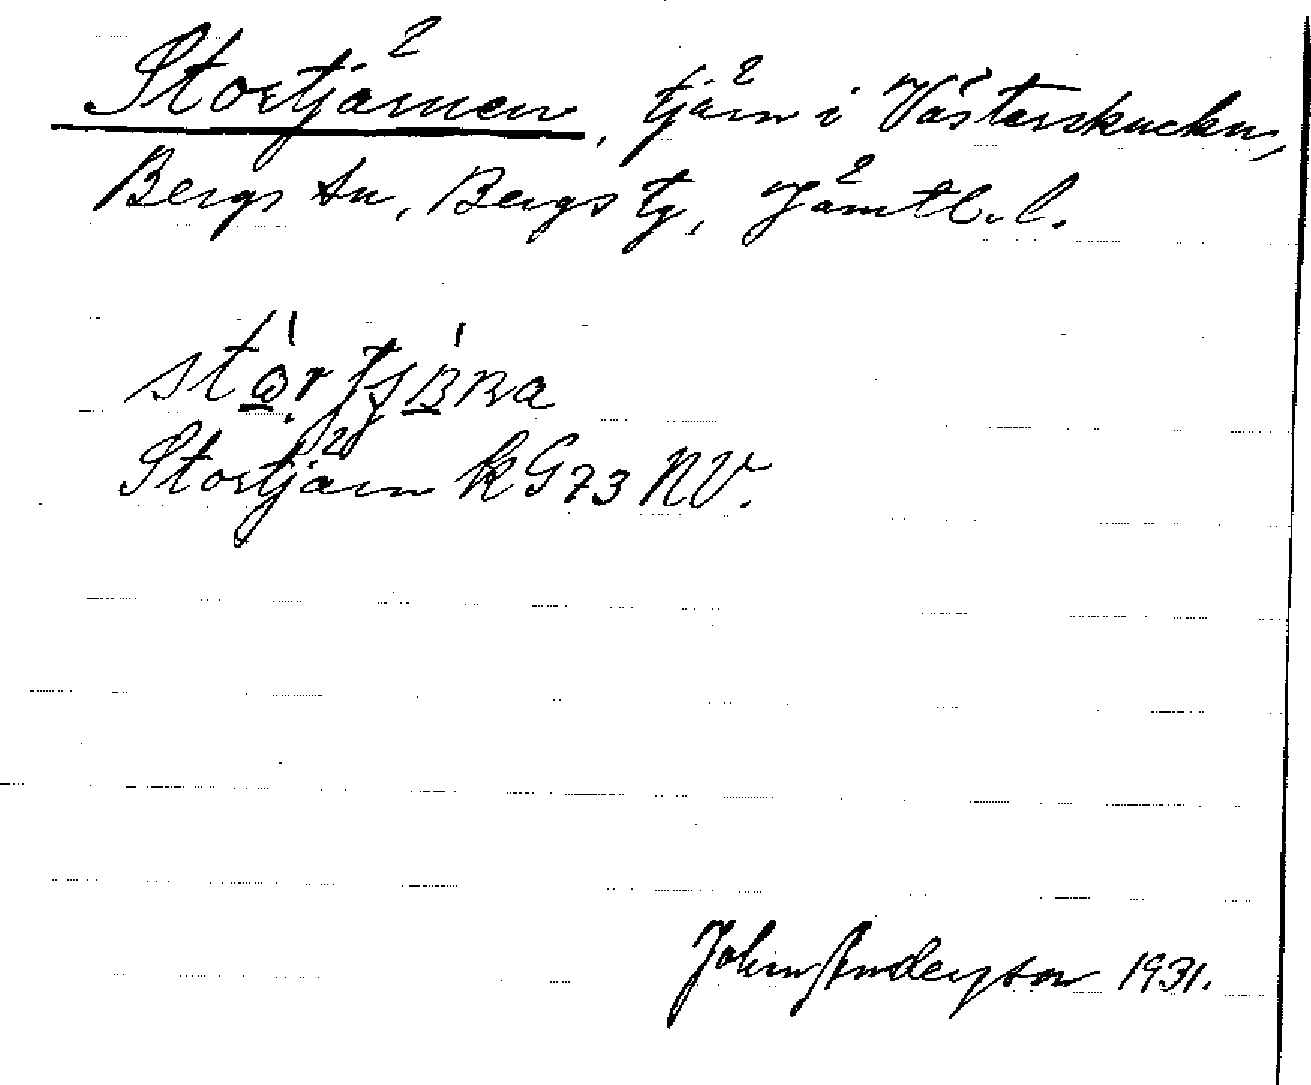 Stortjärnen, tjärn i Västerskucku,
Bergs sn, Bergs tg, Jämtl. l.
Stortjärn k G73 NV.
John Anderson 1931.